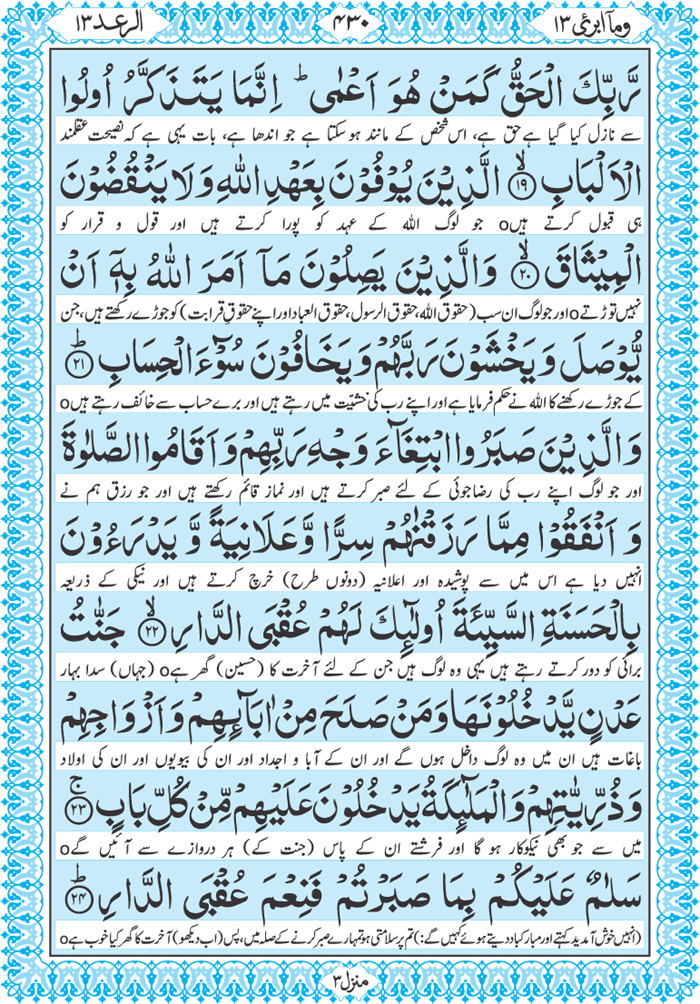 الرعد ١٣ ٤٣٠ ومآ ابرئ ١٣
رَّبِّكَ الْحَقُّ كَمَنْ هُوَ اَعْمٰى ؕ اِنَّمَا يَتَذَكَّرُ اُولُوا
سے نازل کیا گیا ہے حق ہے، اس شخص کے مانند ہو سکتا ہے جو اندھا ہے، بات یہی ہے کہ نصیحت عقلمند
الْاَلْبَابِ ۙ﴿۱۹﴾ الَّذِيْنَ يُوْفُوْنَ بِعَهْدِ اللّٰهِ وَلَا يَنْقُضُوْنَ
ہی قبول کرتے ہیں o جو لوگ اللہ کے عہد کو پورا کرتے ہیں اور قول و قرار کو
الْمِيْثَاقَ ۙ﴿۲۰﴾ وَالَّذِيْنَ يَصِلُوْنَ مَاۤ اَمَرَ اللّٰهُ بِهٖۤ اَنْ
نہیں توڑتے o اور جو لوگ ان سب (حقوق اللہ، حقوق الرسول، حقوق العباد اور اپنے حقوقِ قرابت) کو جوڑے رکھتے ہیں، جن
يُّوْصَلَ وَيَخْشَوْنَ رَبَّهُمْ وَيَخَافُوْنَ سُوْٓءَ الْحِسَابِ ؕ﴿۲۱﴾
کے جوڑے رکھنے کا اللہ نے حکم فرمایا ہے اور اپنے رب کی خشیّت میں رہتے ہیں اور برے حساب سے خائف رہتے ہیں o
وَالَّذِيْنَ صَبَرُوا ابْتِغَآءَ وَجْهِ رَبِّهِمْ وَاَقَامُوا الصَّلٰوةَ
اور جو لوگ اپنے رب کی رضاجوئی کے لئے صبر کرتے ہیں اور نماز قائم رکھتے ہیں اور جو رزق ہم نے
وَاَنْفَقُوْا مِمَّا رَزَقْنٰهُمْ سِرًّا وَّعَلَانِيَةً وَّيَدْرَءُوْنَ
انہیں دیا ہے اس میں سے پوشیدہ اور اعلانیہ (دونوں طرح) خرچ کرتے ہیں اور نیکی کے ذریعہ
بِالْحَسَنَةِ السَّيِّئَةَ اُولٰٓئِكَ لَهُمْ عُقْبَى الدَّارِ ۙ﴿۲۲﴾ جَنّٰتُ
برائی کو دور کرتے رہتے ہیں یہی وہ لوگ ہیں جن کے لئے آخرت کا (حسین) گھر ہے o (جہاں) سدا بہار
عَدْنٍ يَّدْخُلُوْنَهَا وَمَنْ صَلَحَ مِنْ اٰبَآئِهِمْ وَاَزْوَاجِهِمْ
باغات ہیں ان میں وہ لوگ داخل ہوں گے اور ان کے آبا و اجداد اور ان کی بیویوں اور ان کی اولاد
وَذُرِّيّٰتِهِمْ وَالْمَلٰٓئِكَةُ يَدْخُلُوْنَ عَلَيْهِمْ مِّنْ كُلِّ بَابٍ ۚ﴿۲۳﴾
میں سے جو بھی نیکوکار ہو گا اور فرشتے ان کے پاس (جنت کے) ہر دروازے سے آئیں گے o
سَلٰمٌ عَلَيْكُمْ بِمَا صَبَرْتُمْ فَنِعْمَ عُقْبَى الدَّارِ ؕ﴿۲۴﴾
(انہیں خوش آمدید کہتے اور مبارکباد دیتے ہوئے کہیں گے:) تم پر سلامتی ہو تمہارے صبر کرنے کے صلہ میں، پس (اب دیکھو) آخرت کا گھر کیا خوب ہے o
منزل ۳